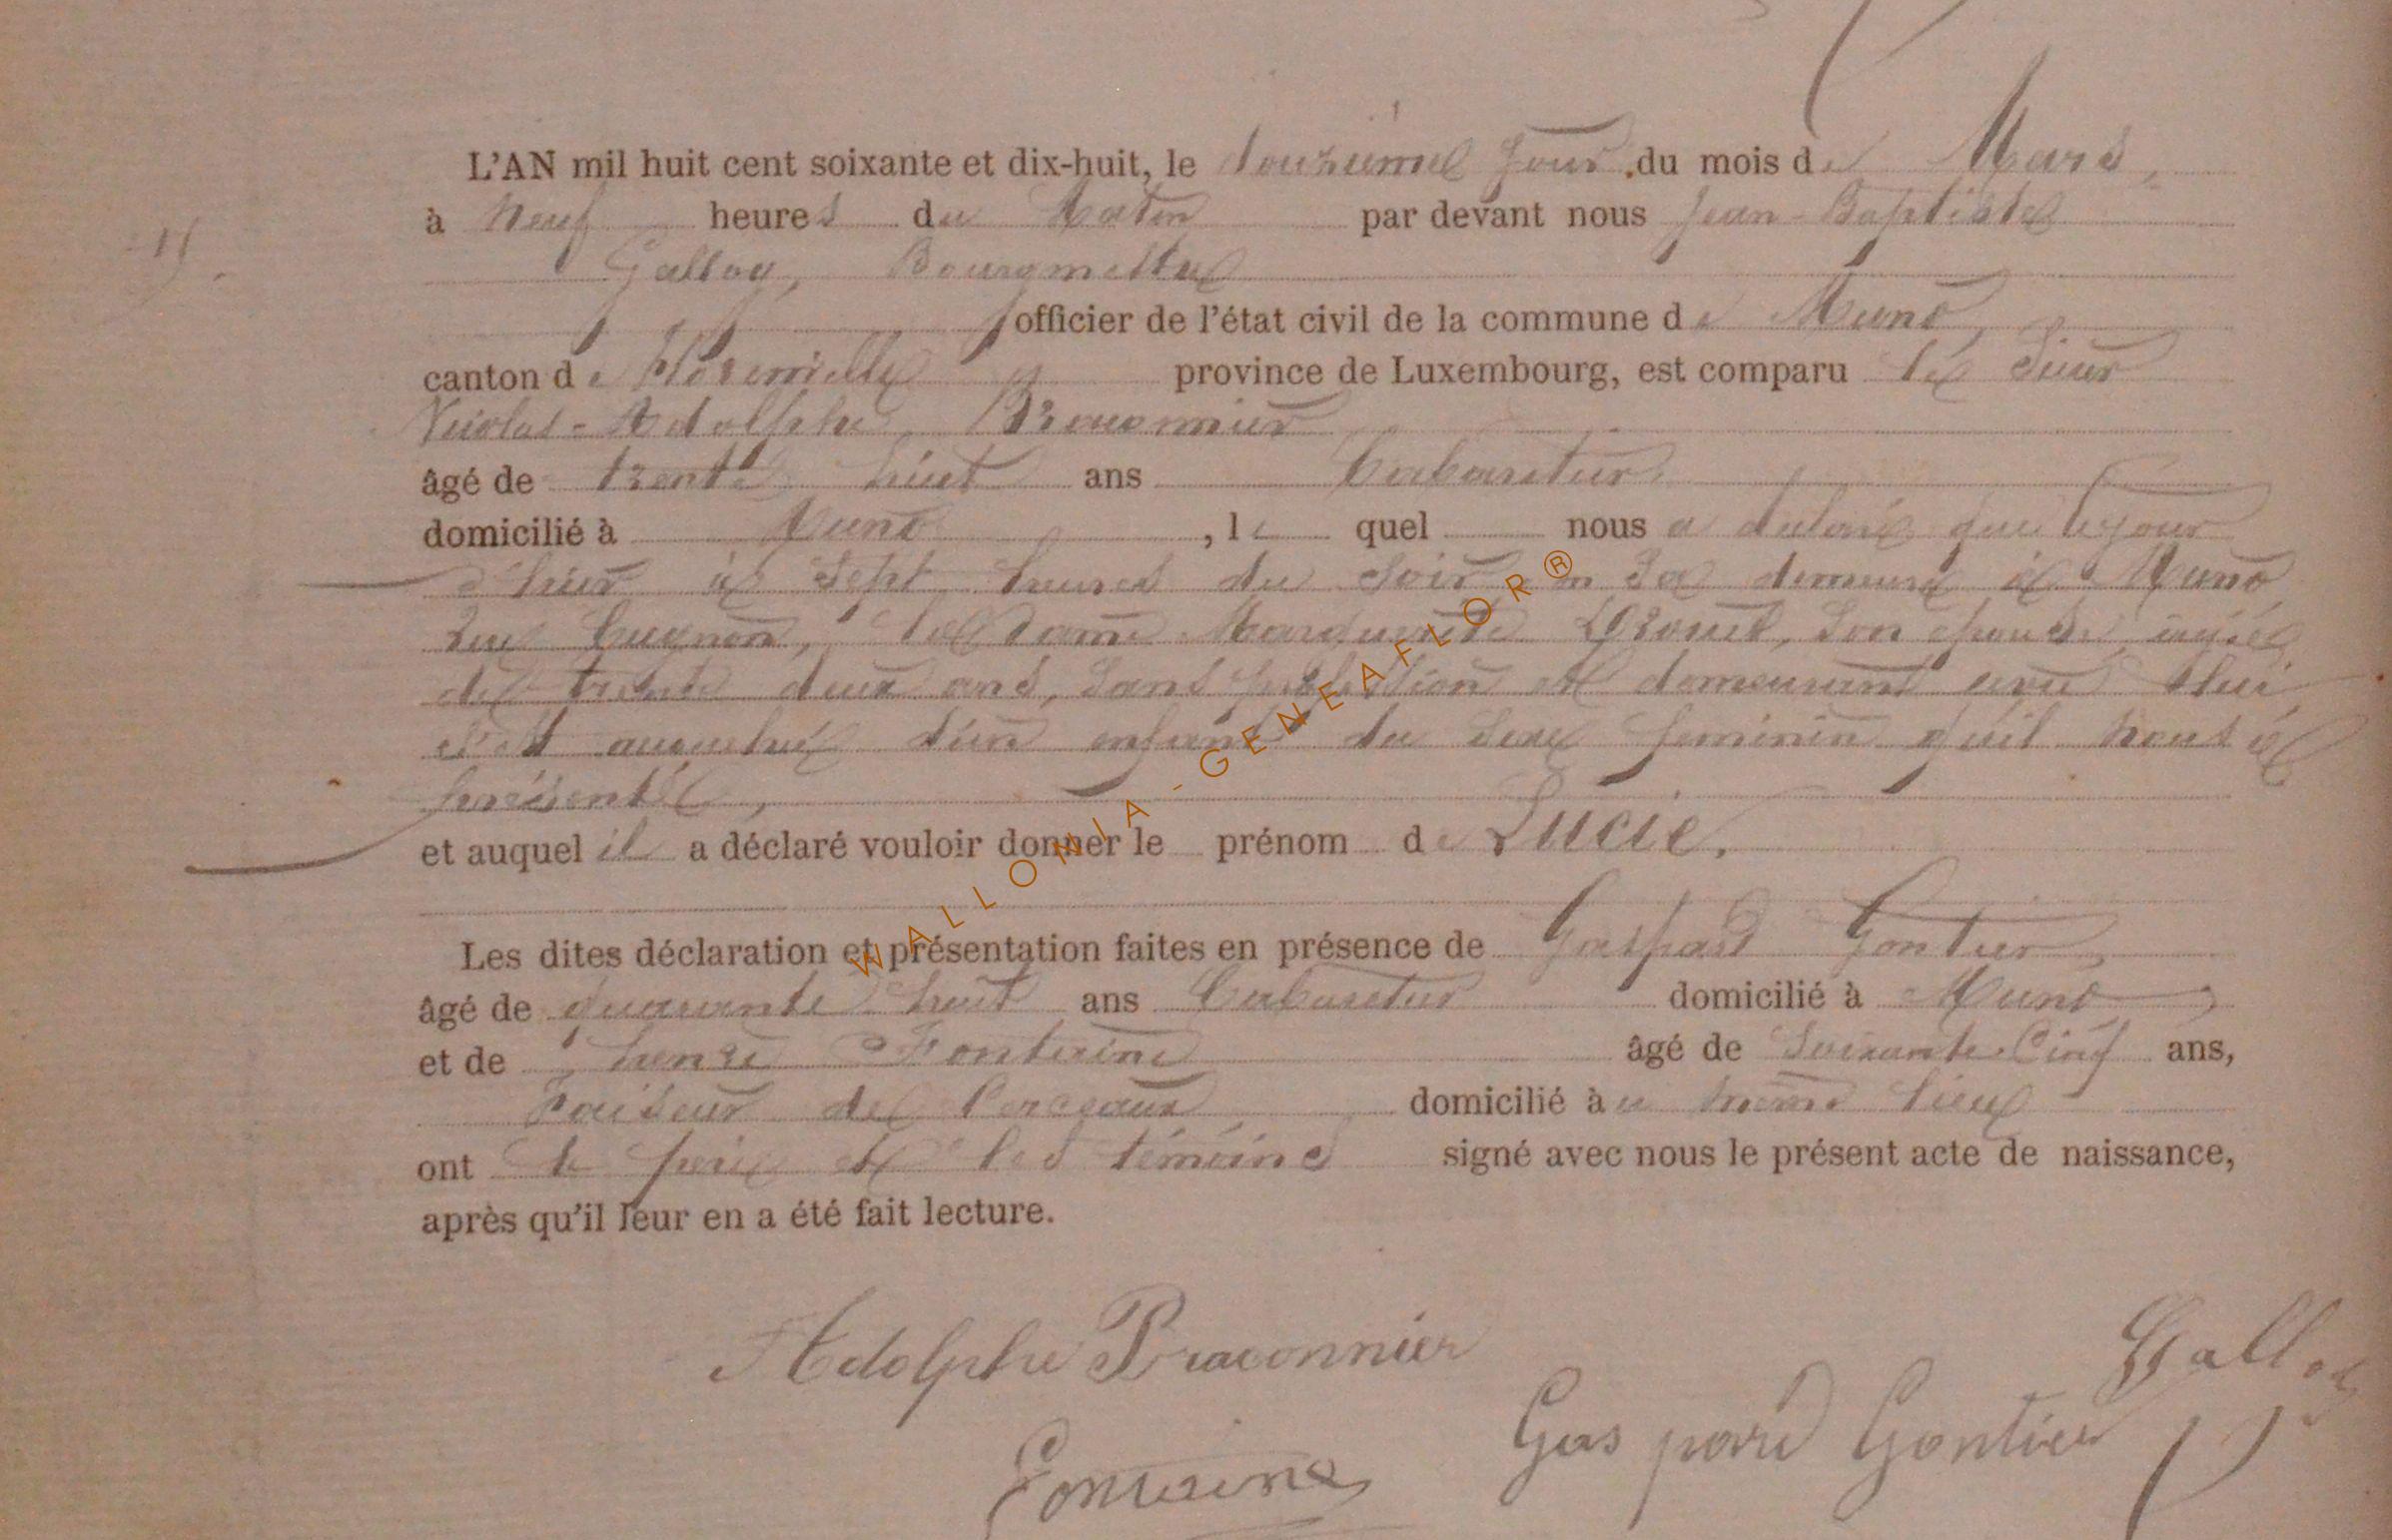 L'AN mil huit cent soixante et dix-huit, le douzieme jour du mois de Mars,
à Neuf heures du Matin par devant nous Jean-Baptiste
11.
Galloy, Bourgmestre
officier de l'état civil de la commune de Muno,
canton de Florenville province de Luxembourg, est comparu le Sieur
Nicolas-Adolphe Braconnier
âgé de trente huit ans Cabaretier
domicilié à Muno, le quel nous a declaré que le jour
d'hier à Sept heures du Soir en Sa demeure à Muno
rue Cugnon, la Dame Marguerite, Son epouse, agée
de trente deux ans, Sans profession et demeurant avec lui
est accouchée d'un enfant du Sexe feminin qu'il nous à
présenté,
et auquel il a déclaré vouloir donner le prénom de Lucie.
Les dites déclaration et présentation faites en présence de Gaspard Gontier
âgé de quarante huit ans Cabaretier domicilié à Muno
et de henri Fontaine âgé de Soixante Cinq ans,
Faiseur de Cerceaux domicilié àu meme lieu
ont le père et les témoins signé avec nous le présent acte de naissance,
après qu'il leur en a été fait lecture.
Adolphe Braconnier
Galloy
Gaspard Gontier
Fontaine
WALLONIA-GENEAFLOR®